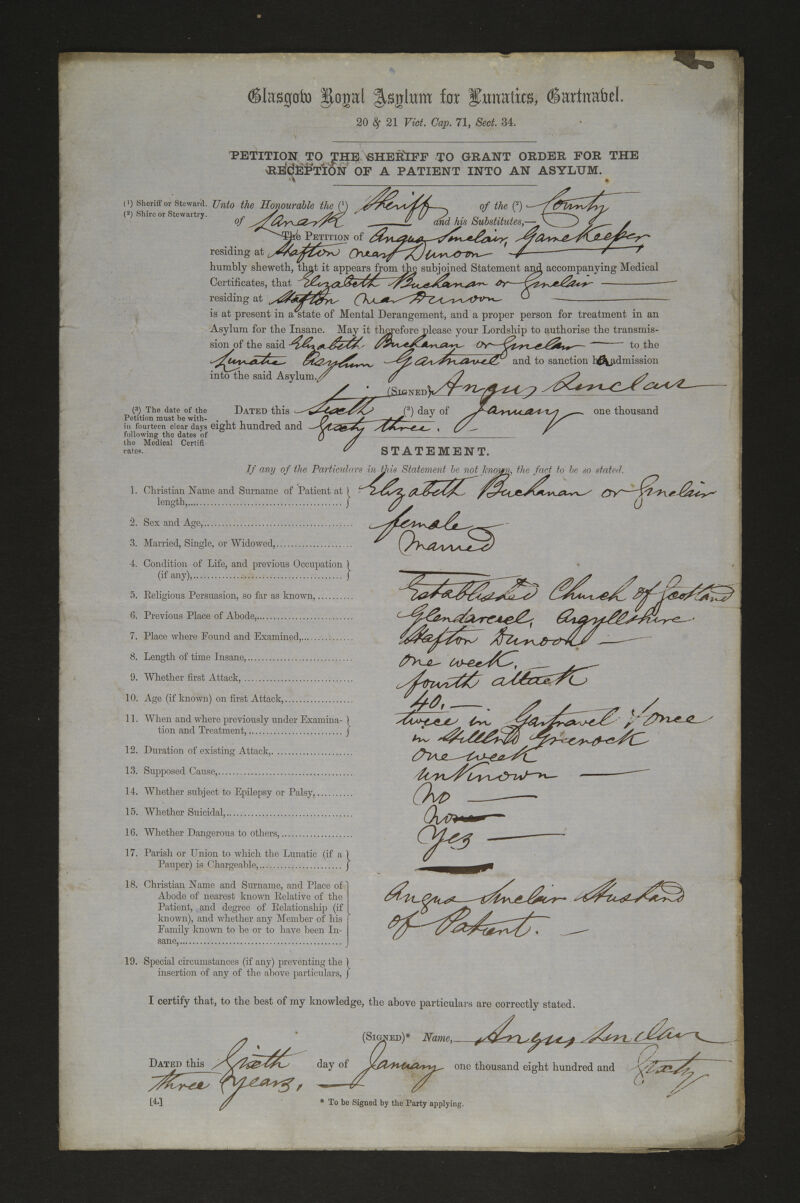 Glasgow Royal Asylum for Lunatics, Gartnabel.
20 & 21 Vict. Cap. 71, Sect. 34.
PETITION TO THE SHERIFF TO GRANT ORDER FOR THE
RECEPTION OF A PATIENT INTO AN ASYLUM.
(1) Sheriff or Steward.
(2) Shire or Stewartry.
Unto the Honourable the (1) Sheriff of the (2) County
of Lanark and his Substitutes,—
The PETITION of Angus Sinclair, Game Keeper
residing at Hafton near Dunoon
humbly sheweth, that it appears from the subjoined Statement and accompanying Medical
Certificates, that Elizabeth Buchanan or Sinclair
residing at Hafton Near Dunoon
is at present in a state of Mental Derangement, and a proper person for treatment in an
Asylum for the Insane. May it therefore please your Lordship to authorise the transmis-
sion of the said Elizabeth Buchanan or Sinclair to the
Lunatic Asylum Gartnavel and to sanction her admission
into the said Asylum,
(SIGNED) Angus Sinclair
(3) The date of the
Petition must be with-
in fourteen clear days
following the dates of
the Medical Certifi-
cates.
DATED this Sixth (3) day of January one thousand
eight hundred and Sixty three.
STATEMENT.
If any of the Particulars in this Statement be not known, the fact to be so stated.
1. Christian Name and Surname of Patient at
length, Elizabeth Buchanan or Sinclair
2. Sex and Age, female
3. Married, Single, or Widowed, Married
4. Condition of Life, and previous Occupation
(if any),
5. Religious Persuasion, so far as known, Established Church of Scotland
6. Previous Place of Abode, Glendareuel, Argyllshire
7. Place where Found and Examined, Hafton Dunoon
8. Length of time Insane, One week.
9. Whether first Attack, fourth attack
10. Age (if known) on first Attack, 40.
11. When and where previously under Examina-
tion and Treatment, twice in Gartnavel & once
in Greenock
12. Duration of existing Attack, One week
13. Supposed Cause, unKnown
14. Whether subject to Epilepsy or Palsy, No
15. Whether Suicidal, No
16. Whether Dangerous to others, Yes
17. Parish or Union to which the Lunatic (if a
Pauper) is Chargeable,
18. Christian Name and Surname, and Place of
Abode of nearest known Relative of the
Patient, and degree of Relationship (if
known), and whether any Member of his
Family known to be or to have been In-
sane,
Angus Sinclair Husband
of Patient.
19. Special circumstances (if any) preventing the
insertion of any of the above particulars,
I certify that, to the best of my knowledge, the above particulars are correctly stated.
(SIGNED)* Name, Angus Sinclair
DATED this Sixth day of January one thousand eight hundred and Sixty
three Years,
[4.]
* To be Signed by the Party applying.